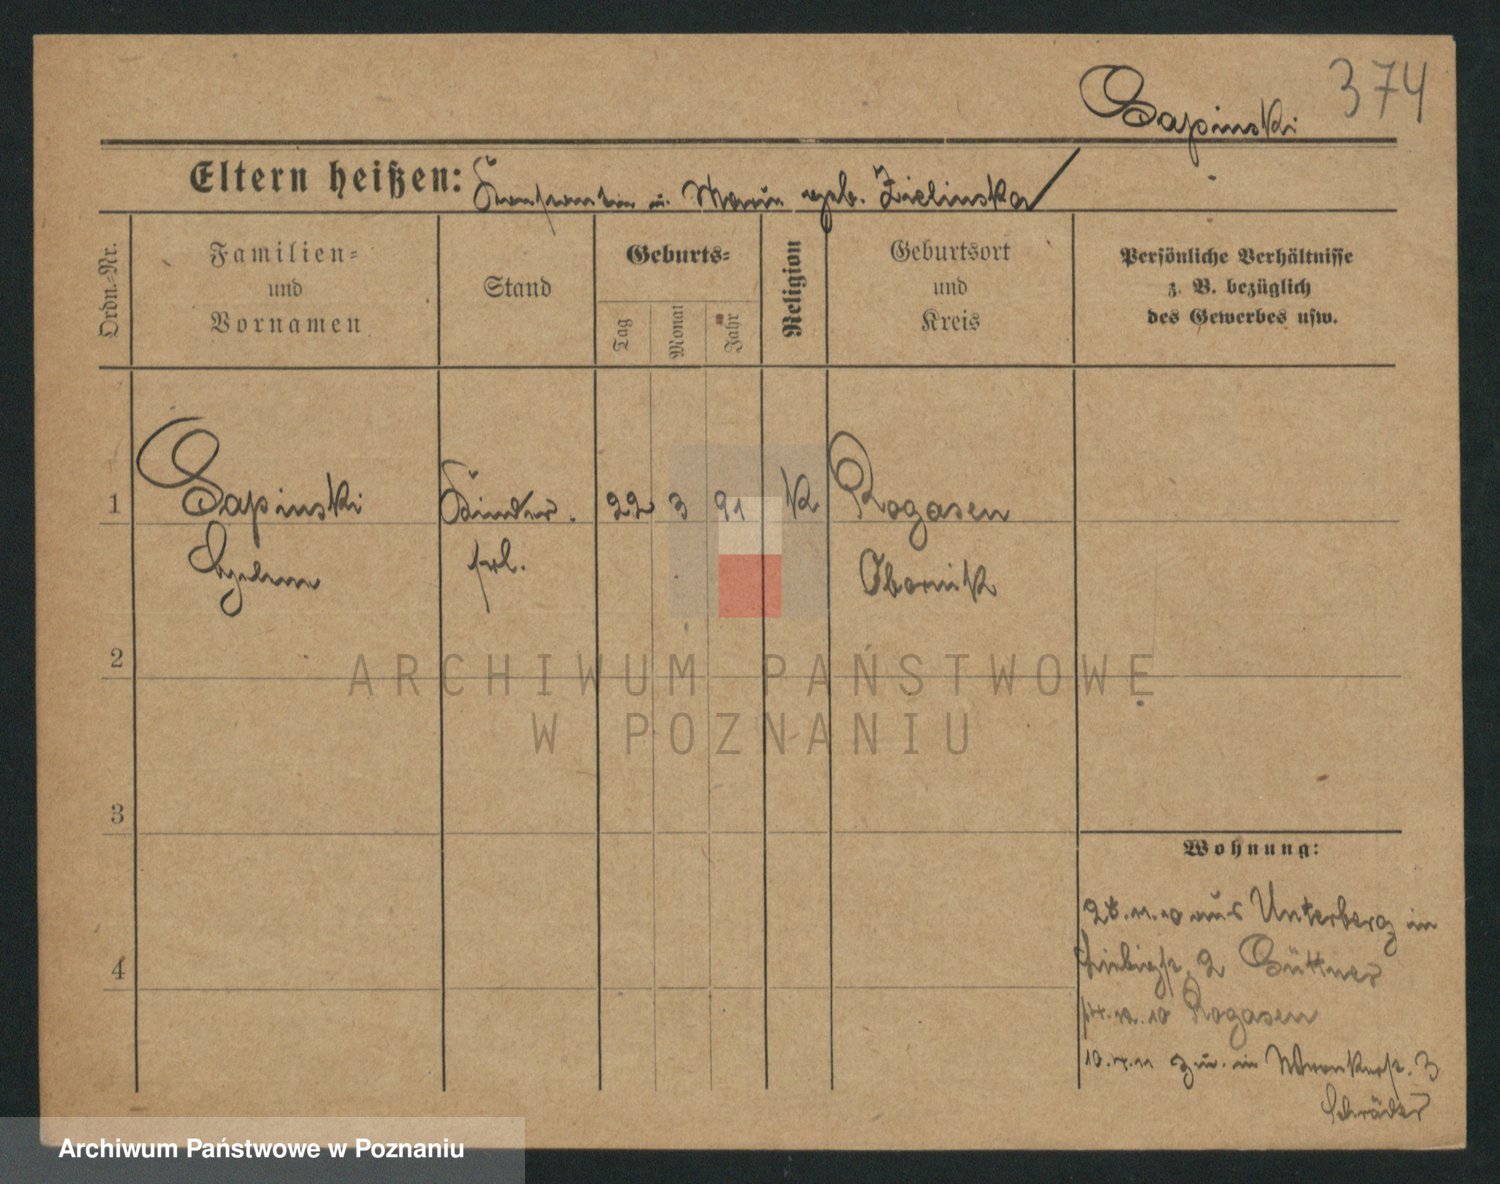 374
Sapinski
Eltern heißen: Konstantin u. Maria geb. Zielinska
Ordn.-Nr.
Familien-
und
Vornamen
Stand
Geburts-
Tag
Monat
Jahr
Religion
Geburtsort
und
Kreis
Persönliche Verhältnisse
z. B. bezüglich
des Gewerbes usw.
1
Sapinski
Kinder.
frl.
22 3 91 K
Rogasen
Obornik
2
ARCHIWUM PAŃSTWOWE
W POZNANIU
3
Wohnung:
28.11.10 aus Unterberg in
2 Büttner
10 Rogasen
4
10.4.11 zu. in Wronkerst. 3
Schröder
Archiwum Państwowe w Poznaniu